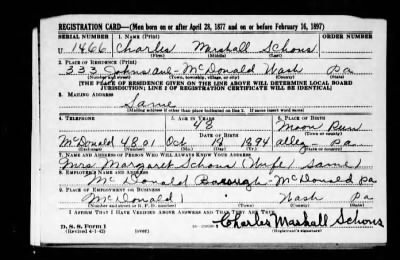 REGISTRATION CARD—(Men born on or after April 28, 1877 and on or before February 16, 1897)
SERIAL NUMBER 1. NAME (Print) ORDER NUMBER
U 1466 Charles Marshall Schons
(First) (Middle) (Last)
2. PLACE OF RESIDENCE (Print)
333 Johns ave - McDonald Wash Pa
(Number and street) (Town, township, village, or city) (County) (State)
[THE PLACE OF RESIDENCE GIVEN ON THE LINE ABOVE WILL DETERMINE LOCAL BOARD
JURISDICTION; LINE 2 OF REGISTRATION CERTIFICATE WILL BE IDENTICAL]
3. MAILING ADDRESS
Same
(Mailing address if other than place indicated on line 2. If same insert word same)
4. TELEPHONE 5. AGE IN YEARS 6. PLACE OF BIRTH
48 Moon Run
DATE OF BIRTH (Town or county)
McDonald 4801 Oct 1894 alleg Pa
(Exchange) (Number) (Mo.) (Day) (Yr.) (State or country)
7. NAME AND ADDRESS OF PERSON WHO WILL ALWAYS KNOW YOUR ADDRESS
Mrs. Margaret Schons (Wife) Same)
8. EMPLOYER'S NAME AND ADDRESS
McDonald Borough - McDonald Pa
9. PLACE OF EMPLOYMENT OR BUSINESS
McDonald Wash Pa
(Number and street or R. F. D. number) (Town) (County) (State)
I AFFIRM THAT I HAVE VERIFIED ABOVE ANSWERS AND THAT THEY ARE TRUE.
D. S. S. Form 1
(Revised 4-1-42) (over) Charles Marshall Schons
(Registrant's signature)